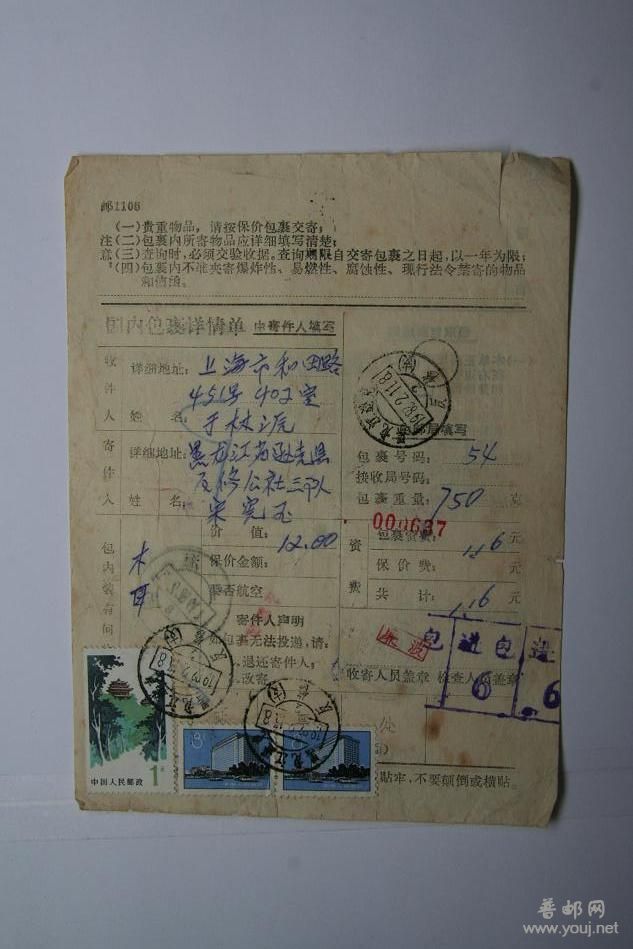 邮1106
(一)贵重物品，请按保价包裹交寄；
注(二)包裹内所寄物品应详细填写清楚；
意(三)查询时，必须交验收据。查询期限自交寄包裹之日起，以一年为限；
(四)包裹内不准夹寄爆炸性、易燃性、腐蚀性、现行法令禁寄的物品
和信函。
国内包裹详情单 由寄件人填写
收件人
详细地址： 上海市和田路
451号402室
姓 名： 于林派
寄件人
详细地址： 黑龙江省逊克县
反修公社三队
姓 名： 宋宪玉
邮局填写
包裹号码： 54
接收局号码：
包裹重量： 750 克
000637
价 值： 12.00
保价金额：
要否航空
包内装有何物
木耳
资费
包裹资费： 1.16 元
保 价 费： 元
共 计： 1.16 元
寄件人声明
如包裹无法投递，请：
退还寄件人；
改寄
收寄人员盖章 检查人员盖章
包 进 包 进
6 6
中国人民邮政
1
8
贴牢，不要颠倒或横贴。
普邮网
www.youj.net